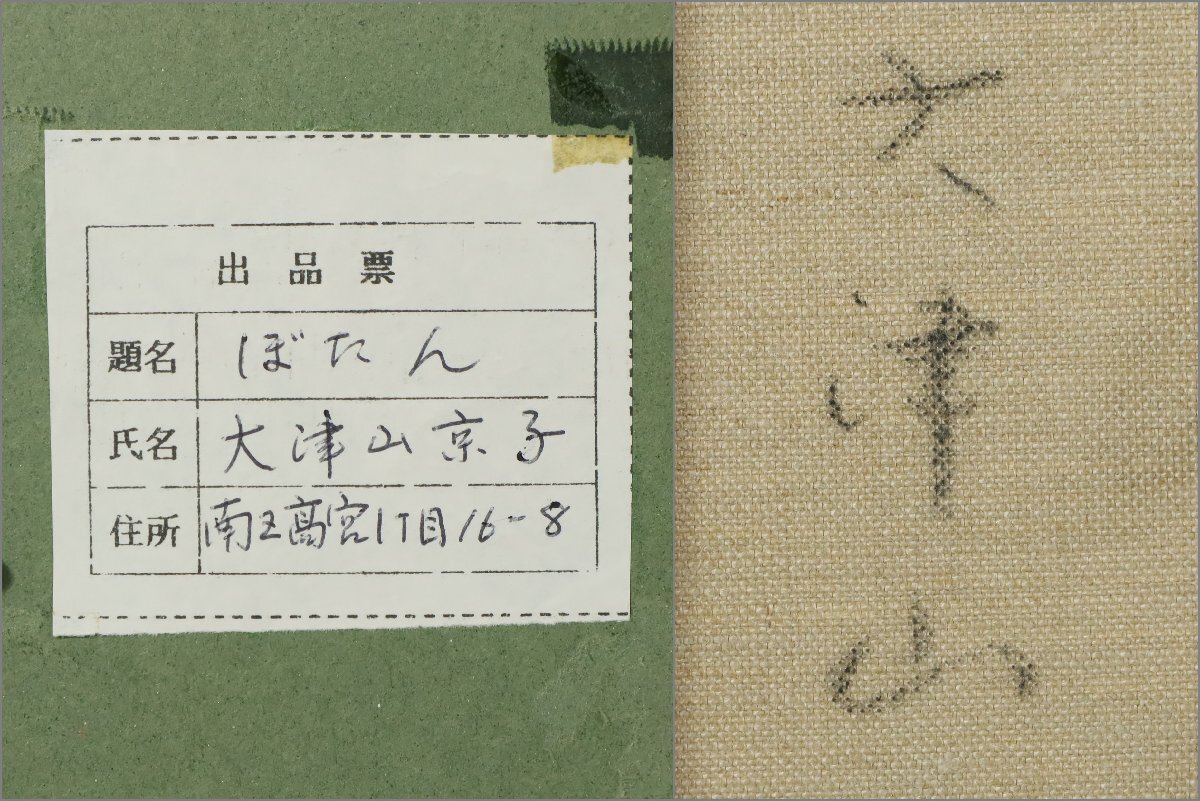 出品票
題名 ぼたん
氏名 大津山京子
住所 南区高宮1丁目16-8
大津山